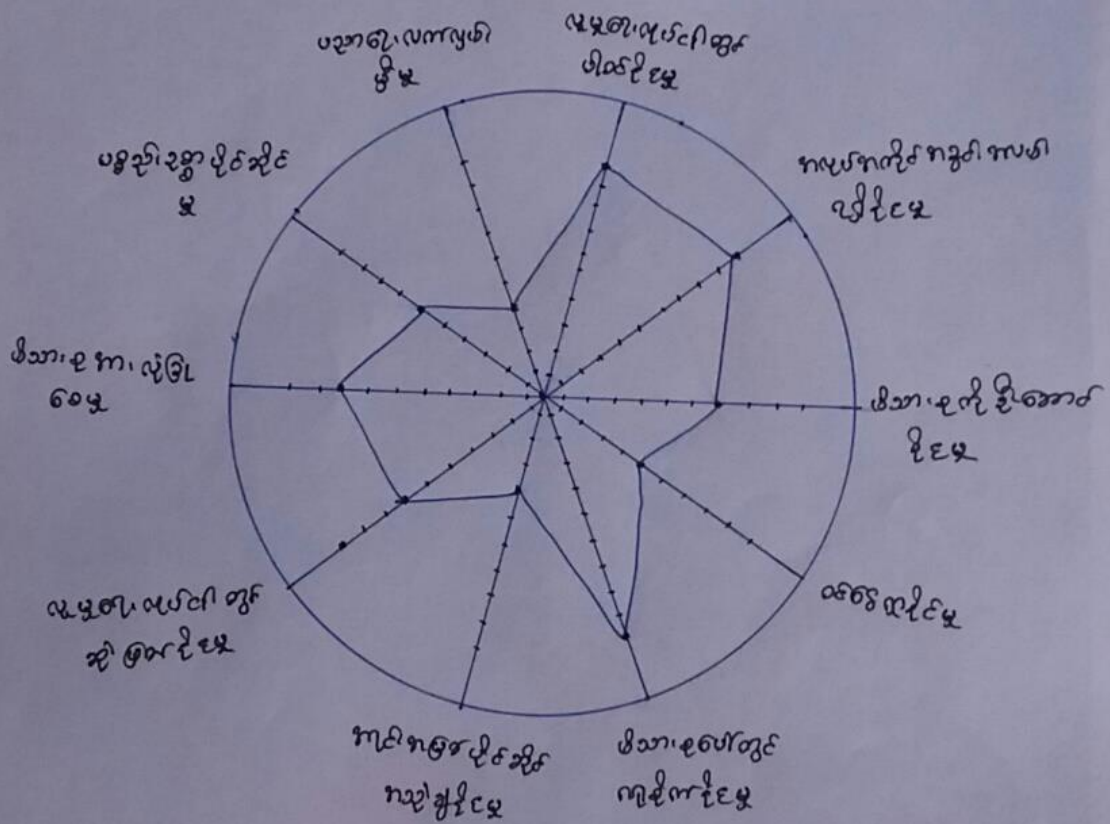 ပညာရေး လက်လှမ်း
မှီမှု
လူမှုရေး လုပ်ငန်းတွင်
ပါဝင်နိုင်မှု
အလုပ်အကိုင် အခွင့်အလမ်း
ရရှိနိုင်မှု
မိသားစုကို ဦးဆောင်
နိုင်မှု
ဝင်ငွေ ရနိုင်မှု
မိသားစုပေါ်တွင်
နိုင်မှု
ပိုင်ဆိုင်
နိုင်မှု
လူမှုရေး လုပ်ငန်း တွင်
ဆုံးဖြတ်နိုင်မှု
မိသားစု အား လုံခြုံ
စေမှု
ပစ္စည်း ဥစ္စာ ပိုင်ဆိုင်
မှု